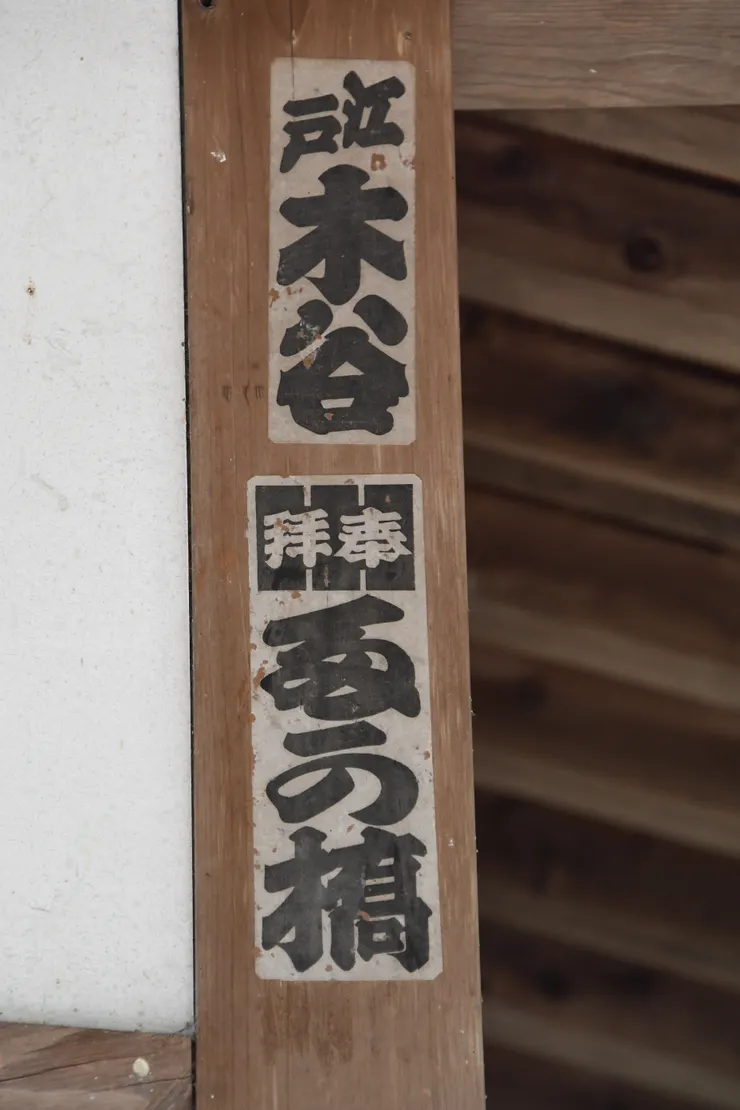 江戸
木谷
奉拝
西の橋